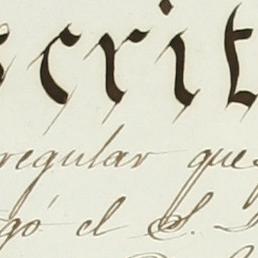 scrit
regular que
gó el S.